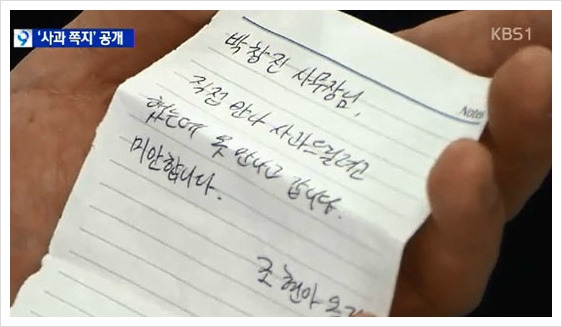 9 '사과 쪽지' 공개
KBS1
Note
박창진 사무장님,
직접 만나 사과드릴려고
했는데 못 만나고 갑니다.
미안합니다.
조현아 올림